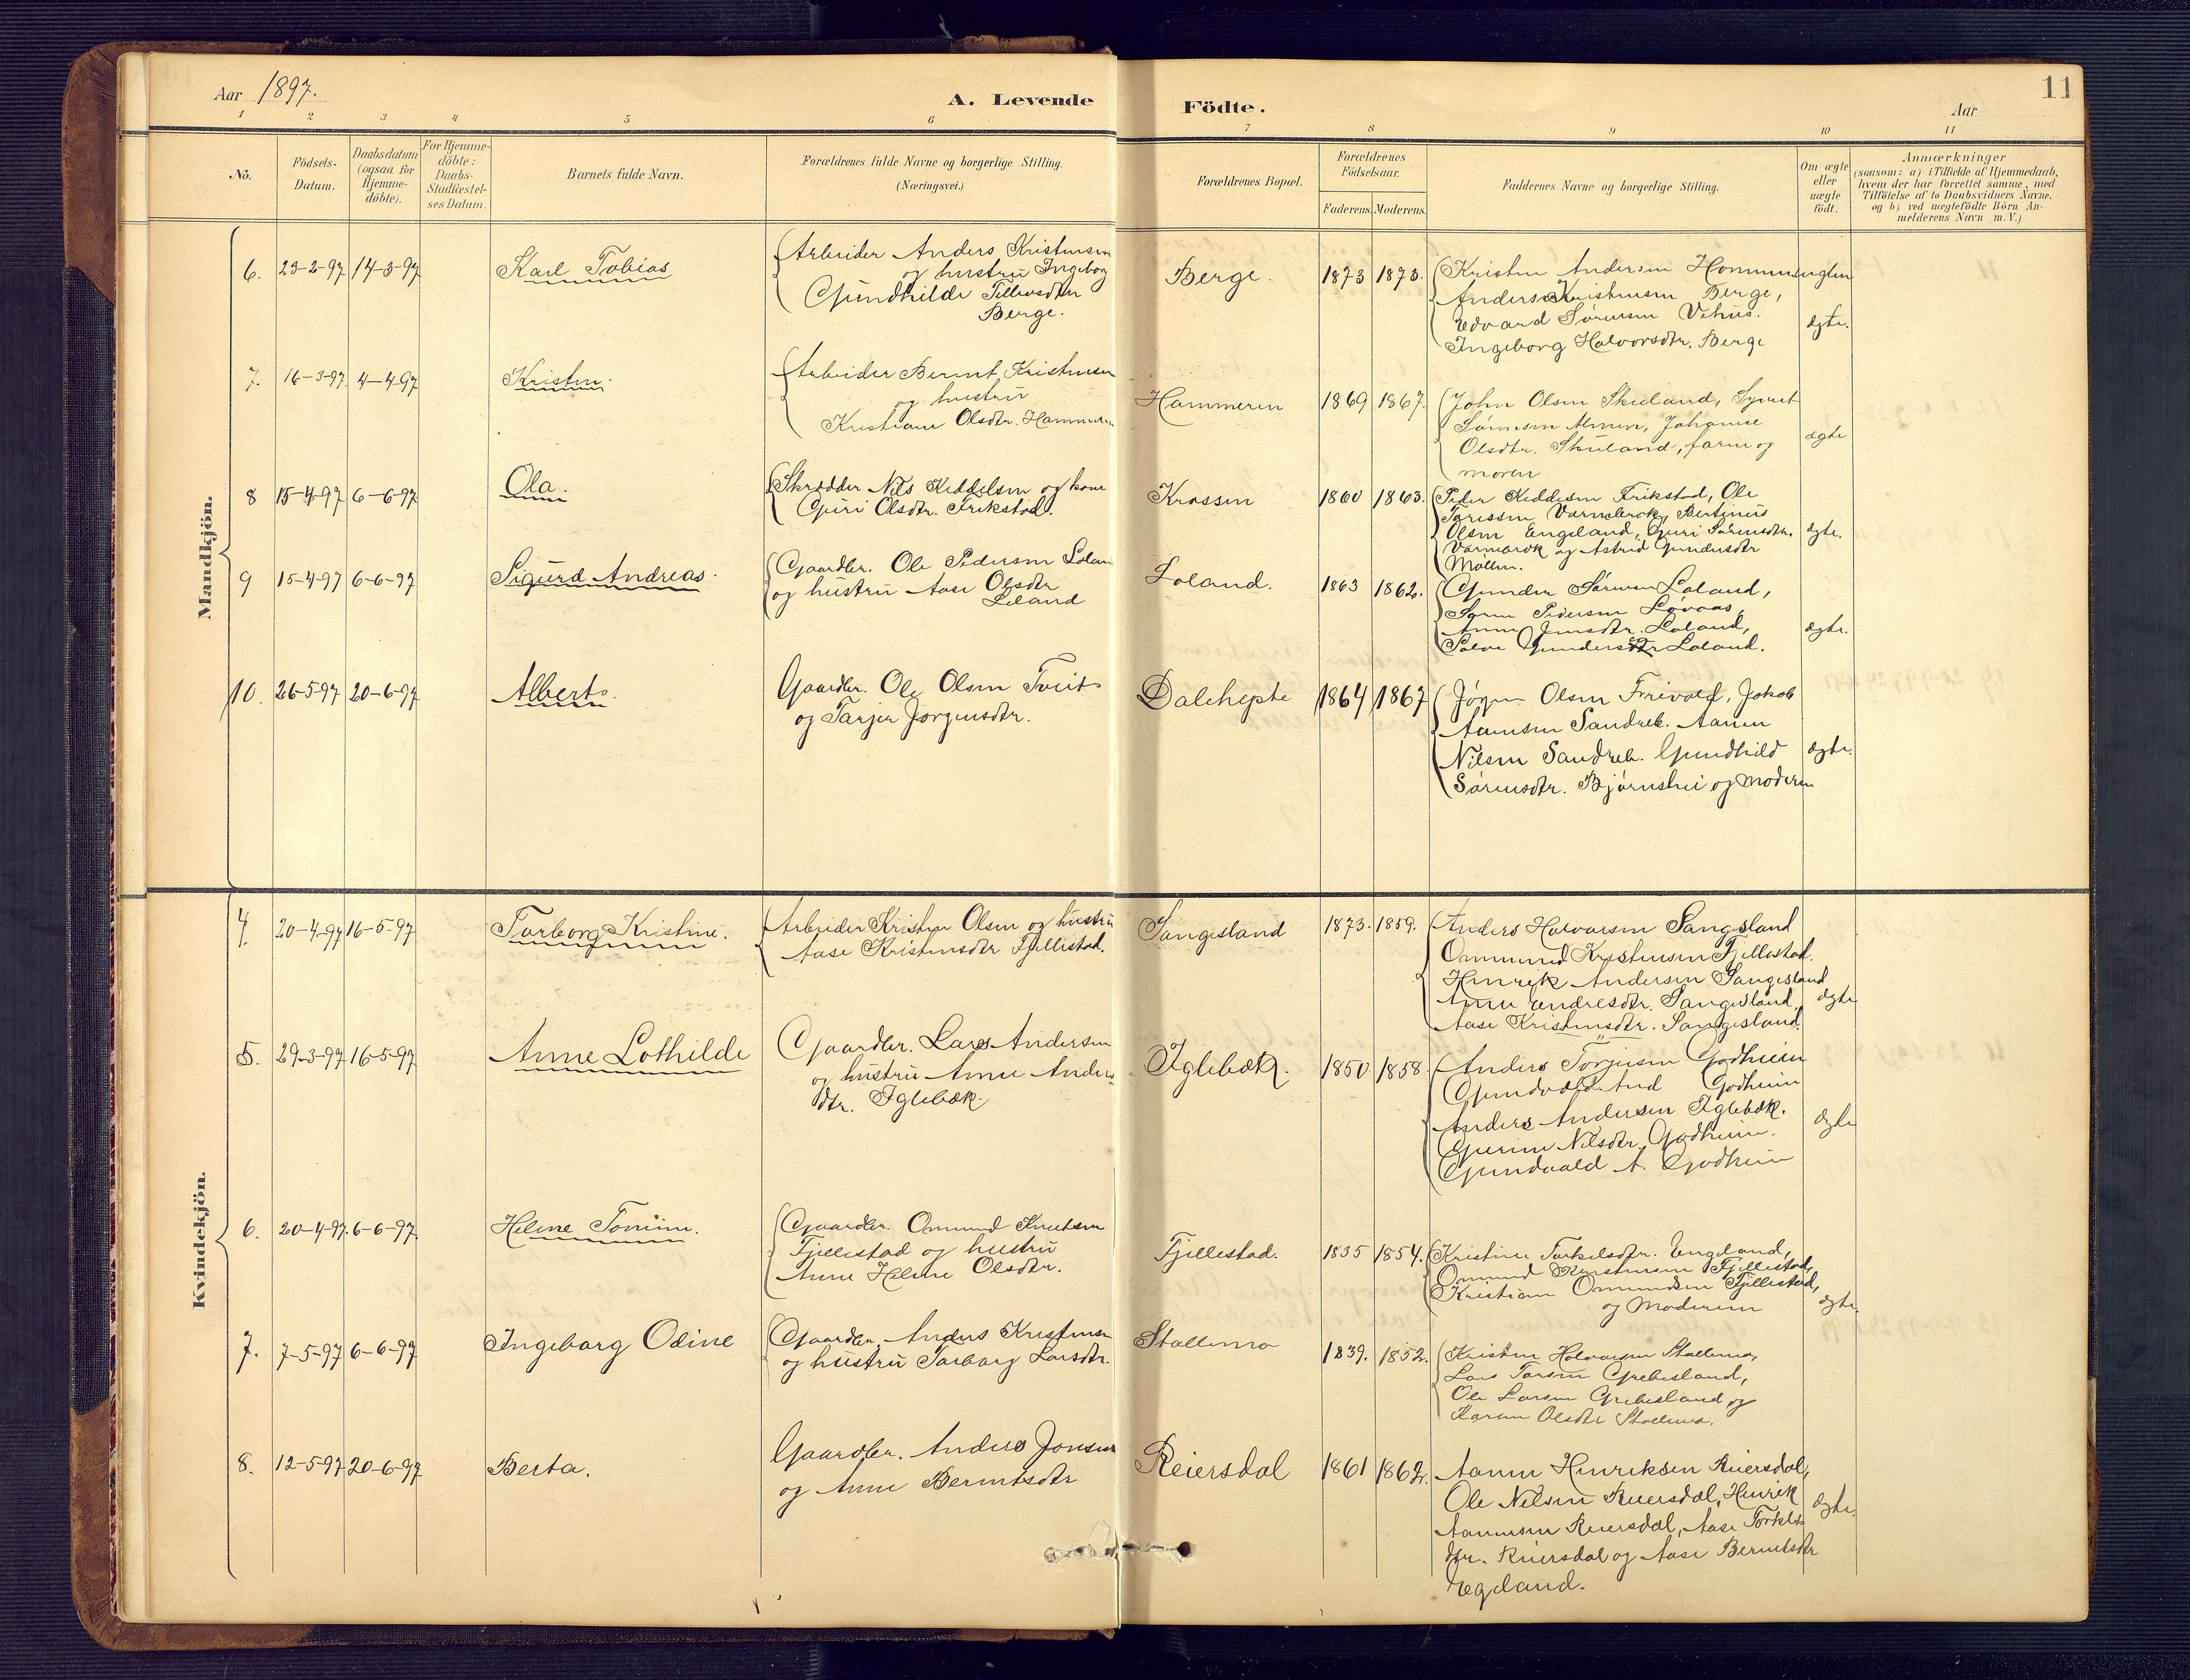 Aar 1897.
A. Levende
Födte.
Aar
11
1
2
3
4
5
6
7
8
9
10
11
Nô.
Födsels-
Datum.
Daabsdatum
(ogsaa for
Hjemme-
döbte).
For Hjemme-
döbte:
Daabs-
Stadfæstel-
ses Datum.
Barnets fulde Navn.
Forældrenes fulde Navne og borgerlige Stilling.
(Næringsvei.)
Forældrenes Bopæl.
Forældrenes
Födselsaar.
Faderens.
Moderens.
Faddernes Navne og borgerlige Stilling.
Om ægte
eller
uægte
födt.
Anmærkninger
(saasom: a) i Tilfælde af Hjemmedaab,
hvem der har forrettet samme, med
Tilföielse af to Daabsvidners Navne,
og b) ved uægtefödte Börn An-
melderens Navn m. V.)
Mandkjön.
6. 23-2-97 14-3-97 Karl Tobias
Arbeider Anders Kristensen
og hustru Ingeborg
Gundhilde Tellevsdtr
Berge.
Berge. 1873 1873.
Kristen Andersen Hommen
Anders Kristensen Berge,
Edvard Sørensen Vehus.
Ingeborg Halvorsdtr. Berge
ægte.
7. 16-3-97 4-4-97 Kristen.
Arbeider Bernt Kristensen
og hustru
Kristiane Olsdtr. Hammeren
Hammeren 1869 1867.
John Olsen Skuland, Syvert
Sørensen, Johanne
Olsdtr. Skuland, faren og
moren
ægte
8 15-4-97 6-6-97 Ola.
Skrædder Nils Keddelsen og kone
Guri Olsdtr. Frikstad.
Krossen 1860 1863.
Peder Keddelsen Frikstad, Ole
Varnebrok, Bertinius
Olsen Engeland, Guri Sørensdtr.
Varnebrok og Astrid Gundersdtr
Mollen.
ægte.
9 15-4-97 6-6-97 Sigurd Andreas.
Gaardbr. Ole Pedersen Loland
og hustru Aase Olsdtr
Loland
Loland. 1863 1862.
Gunder Sørensen Loland,
Pedersen Løvaas,
Anne Jensdtr. Loland,
Gundersdtr Loland.
ægte.
10. 26-5-97 20-6-97 Albert.
Gaardbr. Ole Olsen Tveit
og Tarjer Jorgensdtr.
Dalehefte 1864 1867
Jørgen Olsen Frivold, Jakob
Aanensen Sandreb. Aanen
Nilsen Sandreb. Gundhild
Sørensdtr. Bjørnshei og moderen
ægte.
Kvindekjön.
4. 20-4-97 16-5-97 Torborg Kristine.
Arbeider Kristen Olsen og hustru
Aase Kristensdtr Fjellestad.
Sangesland 1873. 1859.
Anders Halvorsen Sangesland
Ommund Kristensen Fjellestad.
Henrik Andersen Sangesland
Anne Andresdtr. Sangesland,
Aase Kristensdtr. Sangesland.
ægte
5. 29-3-97 16-5-97 Anne Lothilde
Gaardbr. Lars Andersen
og hustru Anne Anders
dtr. Iglebæk.
Iglebæk. 1850 1858
Anders Torjusen Godheim
Gundvald And Godheim
Anders Andersen Iglebæk.
Gurine Nilsdtr. Godheim.
Gundvald A. Godheim
ægte
6. 20-4-97. 6-6-97. Helene Tomine.
Gaardbr. Ommund Knutsen
Fjellestad og hustru
Anne Helene Olsdtr.
Fjellestad. 1835 1854.
Kristine Torkelsdtr. Engeland,
Omund Kristensen Fjellestad,
Kristiane Ommundsen Fjellestad,
og Moderen
ægte.
7. 7-5-97 6-6-97 Ingeborg Odine
Gaardbr. Anders Kristensen
og hustru Torborg Larsdtr.
Stallemo 1839. 1852.
Kristen Halvorsen Stallemo,
Lars Grebesland,
Ole Larsen Grebesland og
Karen Olsdtr Stallemo.
8. 12-5-97 20-6-97 Berta.
Gaardbr. Anders Jonsen
og Anne Berntsdtr
Reiersdal 1861 1862.
Aanen Henriksen Reiersdal,
Ole Nilsen Reiersdal, Henrik
Aanensen Reiersdal, Aase Torkels
dtr. Reiersdal og Aase Berntsdtr
Egeland.
ægte.